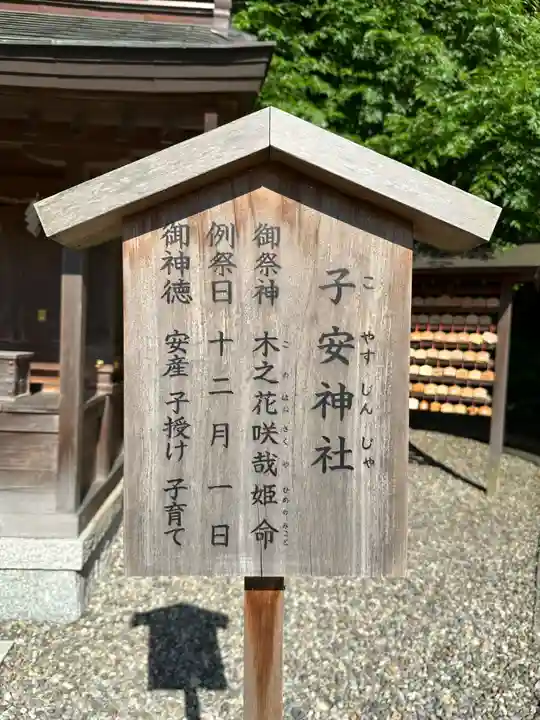 子安神社
こ やす じん じゃ
御祭神 木之花咲哉姫命
この はな さく や ひめの みこと
例祭日 十二月一日
御神徳 安産 子授け 子育て